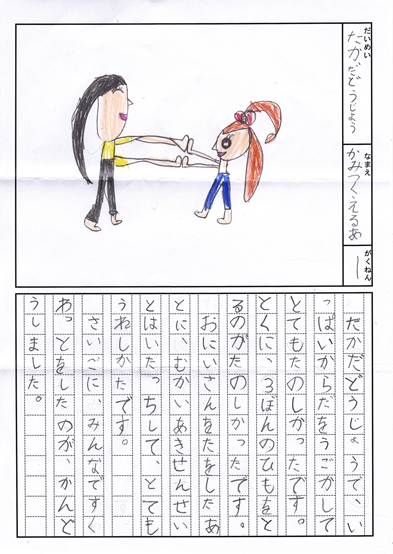 だいめい
たかだどうじょう
なまえ
かみつくえるあ
がくねん
一
たかだどうじょうで、い
っぱいからだをうごかして
とてもたのしかったです。
とくに、3ぼんのひもをと
るのがたのしかったです。
おにいさんをたをしたあ
とに、むかいあきせんせい
とはいたっちして、とても
うれしかたです。
さいごに、みんなですく
わっとをしたのが、かんど
うしました。